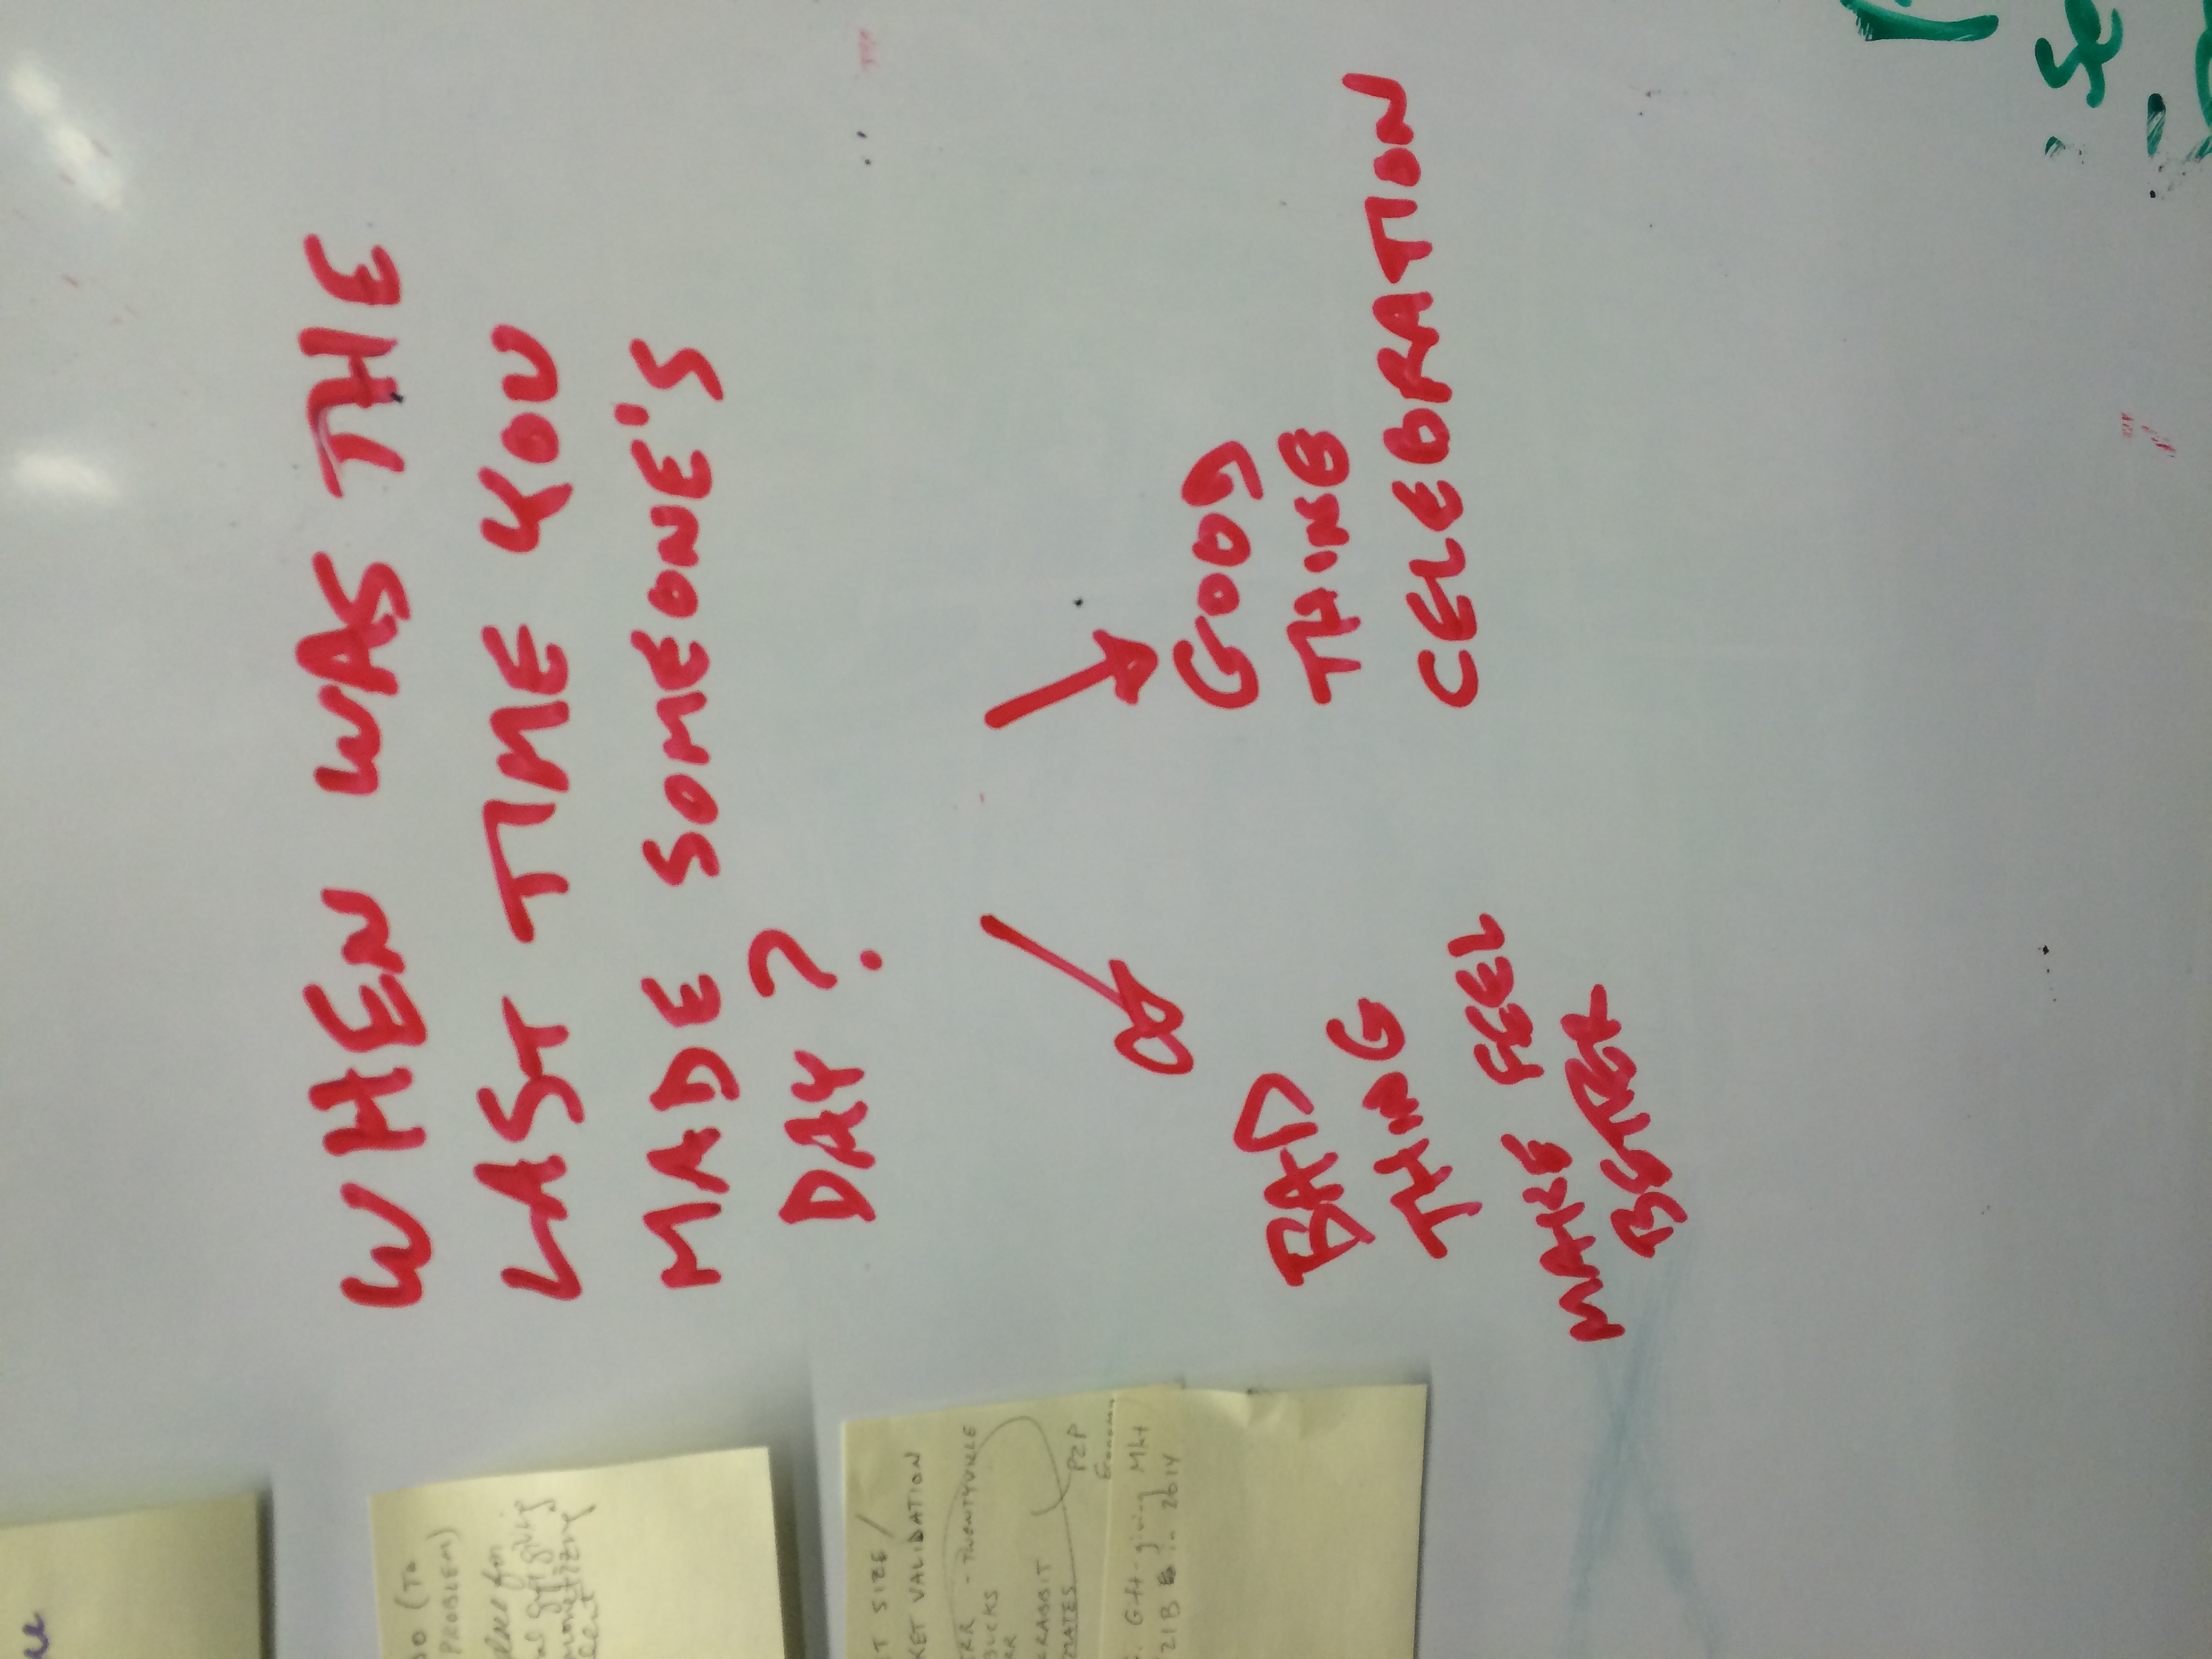 (TO
PROBLEM)
giving
monetizing
SIZE/
VALIDATION
- TWENTYVILLE
BUCKS
RABBIT
MATES
P2P
Economy
Gift-giving Mkt.
21B in 2014
WHEN WAS THE
LAST TIME YOU
MADE SOMEONE'S
DAY?
BAD
THING
MAKE FEEL
BETTER
GOOD
THING
CELEBRATION